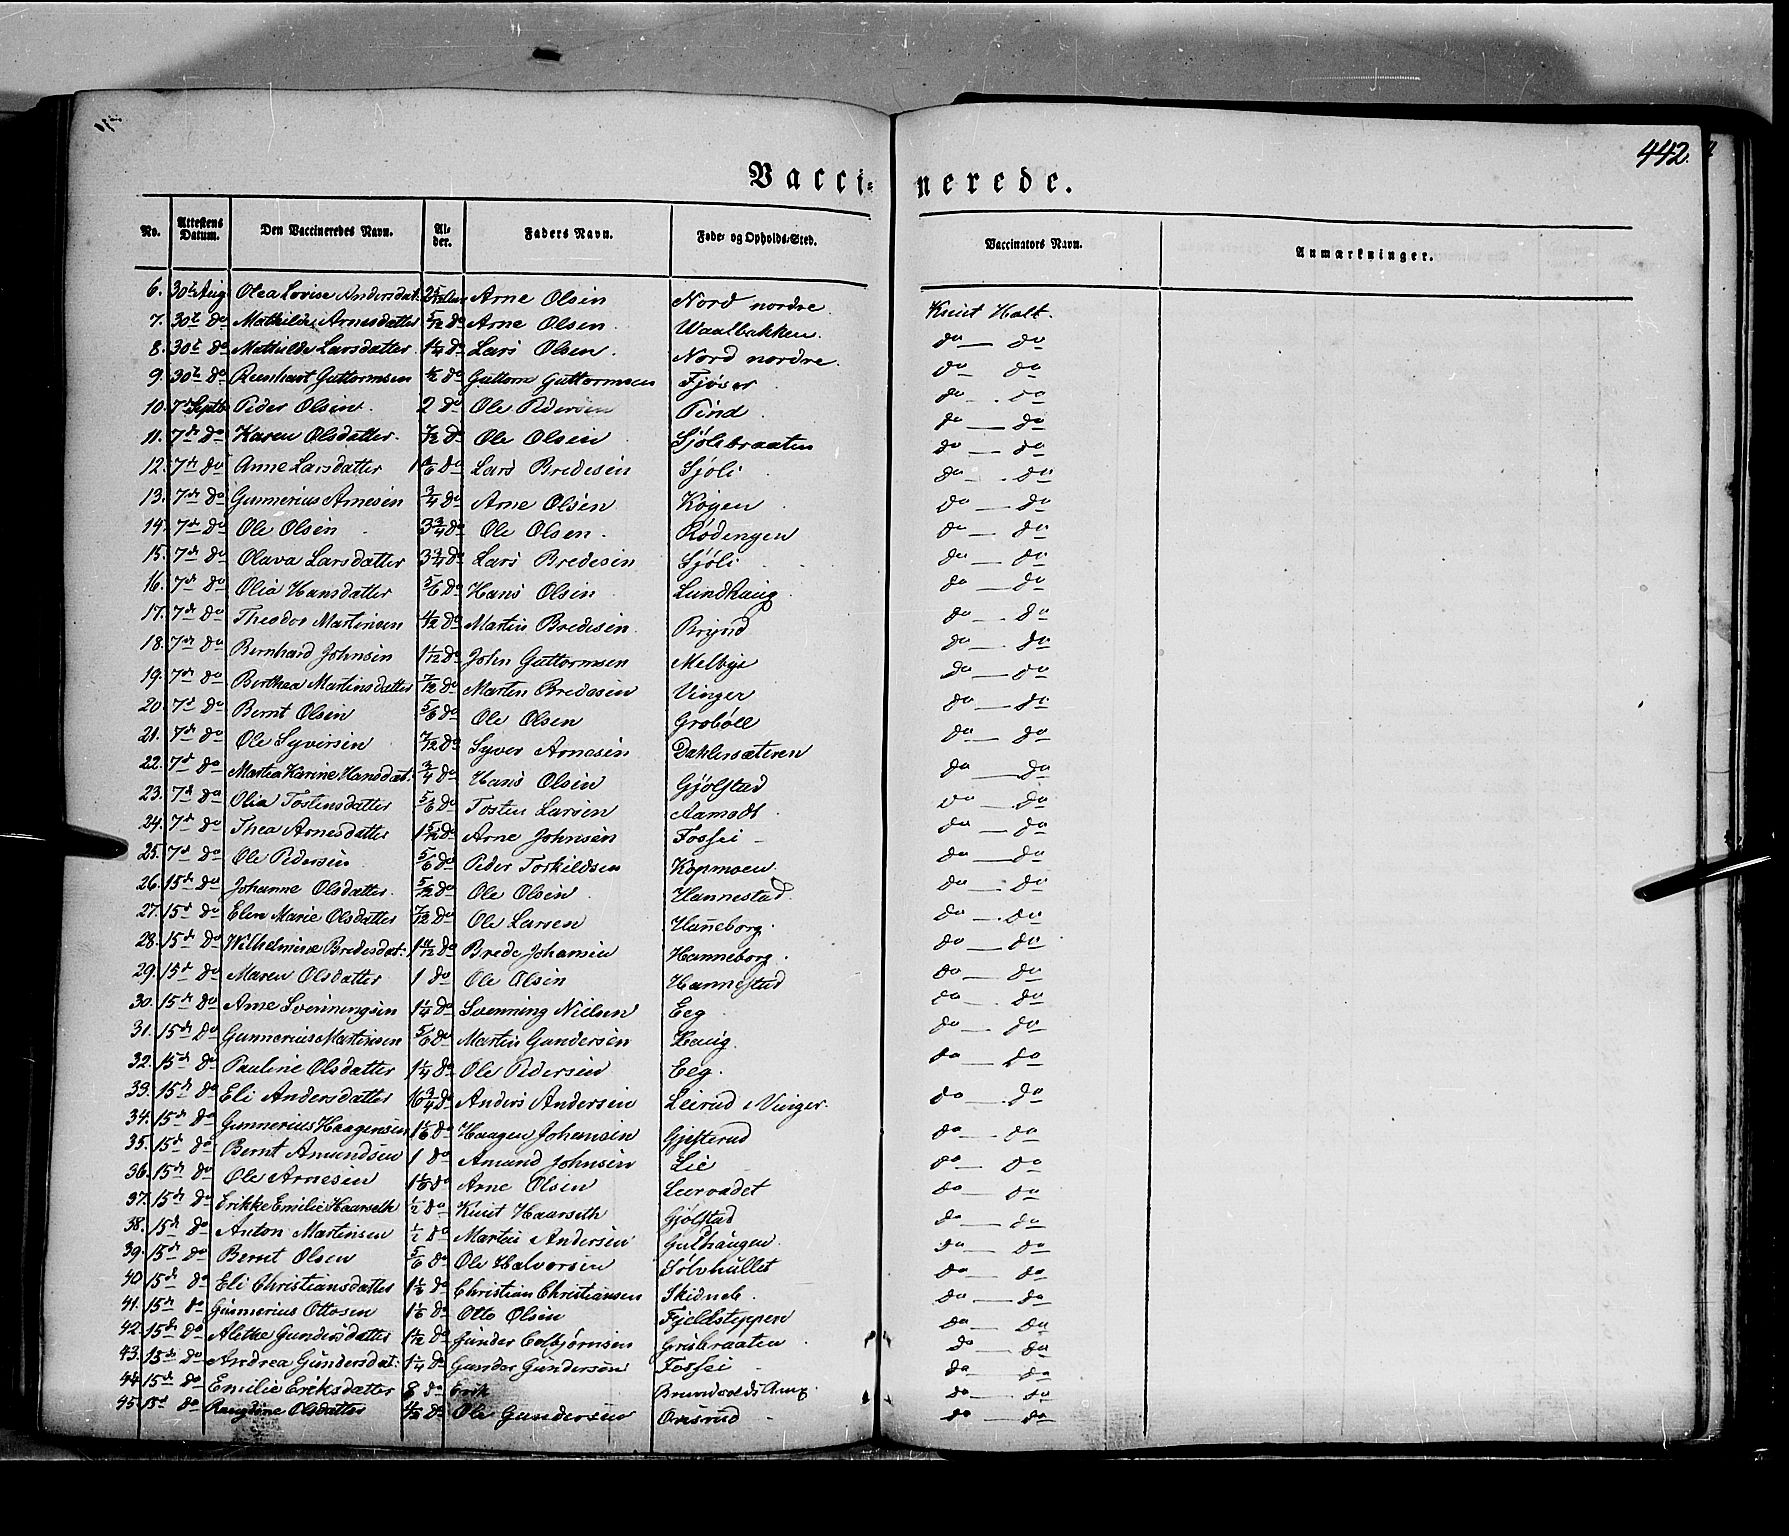 442.
Vacci- nerede.
No. Attestens Datum. Den Vaccineredes Navn. Al- der. Faders Navn. Føde- og Opholds-Sted. Vaccinators Navn. Anmærkninger.
6. 30te Aug Olea Lovise Andersdat. Arne Olsen Nord nordre. Knut Holt.
7. 30te do Mathilde Arnesdatter 5/12 do Arne Olsen Waalbakken. do — do
8. 30te do Mathilde Larsdatter 1 1/4 do Lars Olsen. Nord nordre. do do
9. 30te do Reinhart Guttormsen 1/2 do Guttorm Guttormsen Fjøser do — do
10. 7de Septb Peder Olsen. 2 do Ole Pedersen Tind do — do
11. 7de do Karen Olsdatter. 7/12 do Ole Olsen Sjølibraaten do — do
12. 7de do Anne Larsdatter do Lars Bredesen Sjøli do — do
13. 7de do Gunnerius Arnesen 3/4 do Arne Olsen Kogen do — do
14. 7de do Ole Olsen 3 3/4 do Ole Olsen. Rødengen do — do
15. 7de do Olava Larsdatter 3 3/4 do Lars Bredesen Sjøli do — do
16. 7de do Olia Hansdatter 5/6 do Hans Olsen Lundhaug do — do
17. 7de do Theodor Martinsen 4/12 do Martin Bredesen. Brynd do — do
18. 7de do Bernhard Johnsen 1 1/12 do John Guttormsen Melbye do — do
19. 7de do Berthea Martinsdatter 7/12 do Martin Bredesen Vinger do — do
20. 7de do Bernt Olsen 5/6 do Ole Olsen Grøbøll do — do
21. 7de do Ole Syversen 7/12 do Syver Arnesen Dahlersæteren do — do
22. 7de do Martea Karine Hansdat. 3/4 do Hans Olsen Gjølstad do — do
23. 7de do Olia Tostensdatter 5/6 do Tosten Larsen Aamodt do — do
24. 7de do Thea Arnesdatter 1 5/12 do Arne Johnsen Fossei do — do
25. 7de do Ole Pedersen 5/6 do Peder Torkildsen Kopmoen do — do
26. 15de do Johanne Olsdatter. 5/12 do Ole Olsen Hannestad. do — do
27. 15de do Elen Marie Olsdatter 7/12 do Ole Larsen Hanneborg. do — do
28. 15de do Wilhelmine Bredesdat: do Brede Johansen Hanneborg. do — do
29. 15de do Maren Olsdatter 1 do Ole Olsen Hannestad do — do
30. 15de do Arne Svenningsen 1 1/4 do Svenning Nielsen Eeg do — do
31. 15de do Gunnerius Martinsen 5/6 do Martin Gundersen Haug. do — do
32. 15de do Pauline Olsdatter 1 1/4 do Ole Pedersen Eeg. do — do
33. 15de do Eli Andersdatter 16 3/4 do Anders Andersen Leirud i Vinger. do — do
34. 15de do Gunnerius Haagensen 1 1/6 do Haagen Johansen Gjesterud do — do
35. 15de do Bernt Amundsen 1 do Amund Johnsen Lie do — do
36. 15de do Ole Arnesen 1 1/6 do Arne Olsen Leirvadet do — do
37. 15de do Erikke Emilie Haarseth 1/2 do Knut Haarseth Gjølstad do — do
38. 15de do Anton Martinsen 1/2 do Martin Andersen Gulhaugen. do — do
39. 15de do Bernt Olsen 5/6 do Ole Halvorsen Sølvhullet do — do
40 15de do Eli Christiansdatter do Christian Christiansen Skidneb. do — do
41. 15de do Gunnerius Ottosen 1 1/6 do Otto Olsen Fjeldsteppen do — do
42. 15de do Alethe Gundersdatter 1 1/2 do Gunder Colbjørnsen Grubraaten do — do
43. 15de do Andrea Gundersdat: 1 1/4 do Gunder Gundersen Fossei do — do
44 15de do Emilie Eriksdatter 8 do Erik do — do
45. 15de do Olsdatter 4/12 do Ole Gundersen Onsrud do — do